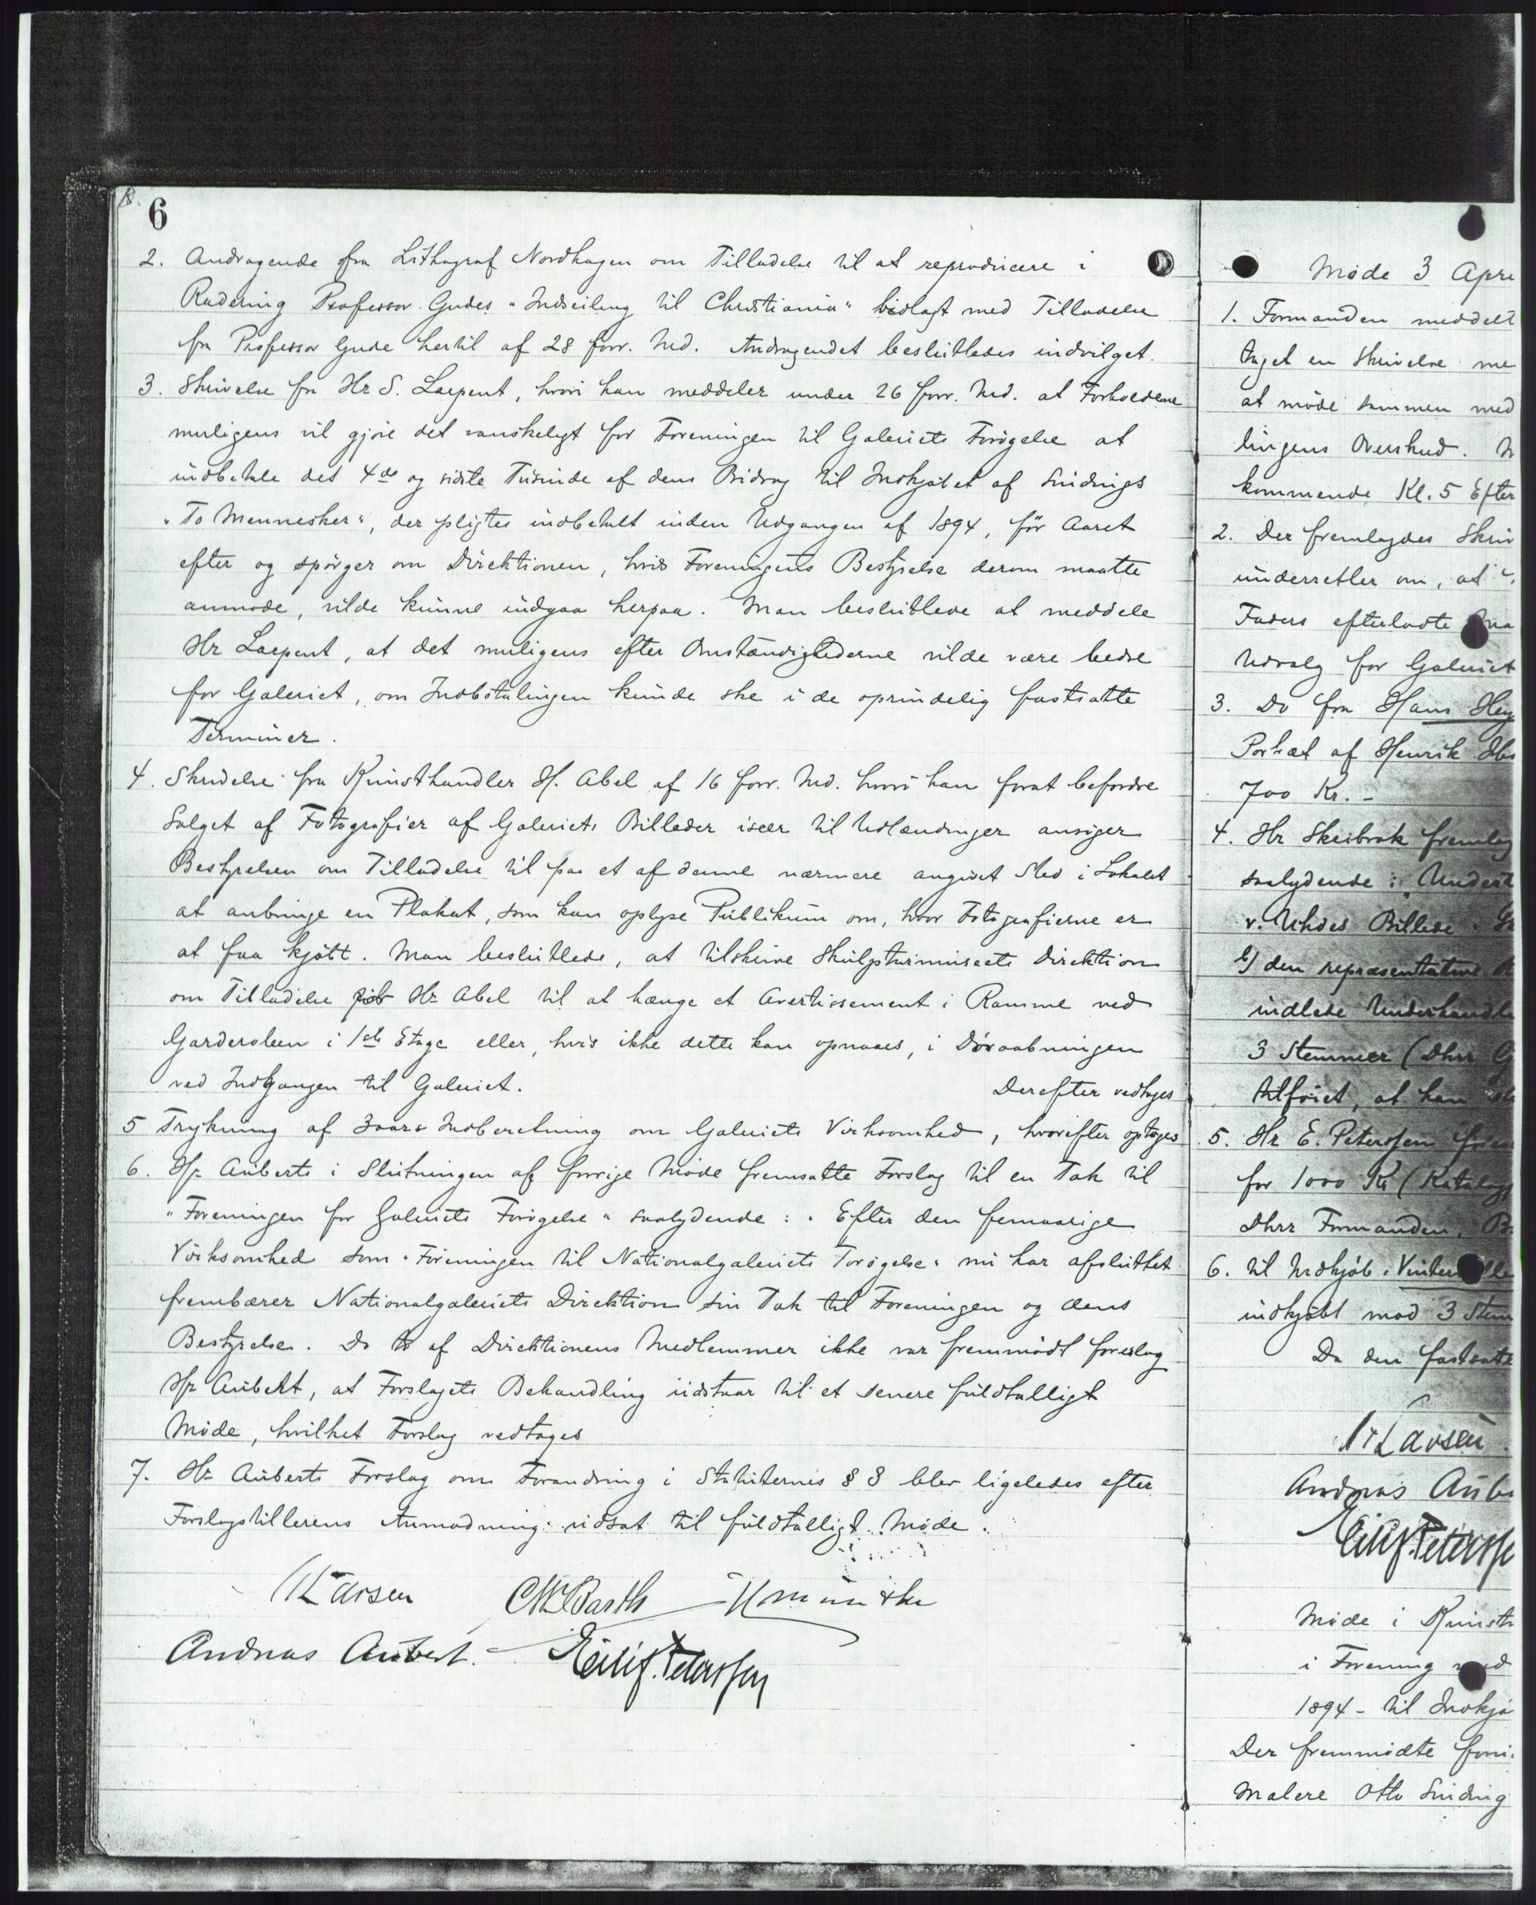 6
2. Andragende fra Lithograf Nordhagen om Tilladelse til at reproducere i
Radering Professor Gudes "Indseiling til Christiania" bilagt med Tilladelse
fra Professor Gude hertil af 28 forr. Md. Andragendet besluttedes indvilget.
3. Skrivelse fra Hr S. Larpent, hvori han meddeler under 26 forr. Md. at Forholdene
muligens vil gjøre det vanskeligt for Foreningen til Galeriets Forøgelse at
indbetale det 4de og sidste Tusinde af dens Bidrag til Indkjøbet af Sindings
"To Mennesker", der pligtes indbetalt inden Udgangen af 1894, før Aaret
efter og spørger om Direktionen, hvis Foreningens Bestyrelse derom maatte
anmode, vilde kunne indgaa herpaa. Man besluttede at meddele
Hr Larpent, at det muligens efter Omstændighederne vilde være bedre
for Galeriet, om Indbetalingen kunde ske i de oprindelig fastsatte
Terminer.
4. Skrivelse fra Kunsthandler H. Abel af 16 forr. Md. hvori han forat befordre
Salget af Fotografier af Galeriets Billeder især til Udlændinger ansøger
Bestyrelsen om Tilladelse til paa et af denne nærmere angivet Sted i Lokalet
at anbringe en Plakat, som kan oplyse Publikum om, hvor Fotografierne er
at faa kjøbt. Man besluttede, at tilskrive Skulpturmuseets Direktion
om Tilladelse for Hr Abel til at hænge et Avertissement i Ramme ved
Garderoben i 1ste Etage eller, hvis ikke dette kan opnaaes, i Døraabningen
ved Indgangen til Galeriet. Derefter vedtoges
5 Trykning af Iaars Indberetning om Galeriets Virksomhed, hvorefter optoges
6. Hr Auberts i Slutningen af forrige Møde fremsatte Forslag til en Tak til
"Foreningen for Galeriets Forøgelse" saalydende: "Efter den femaarige
Virksomhed som "Foreningen til Nationalgaleriets Forøgelse" nu har afsluttet
frembærer Nationalgaleriets Direktion sin Tak til Foreningen og dens
Bestyrelse. Da to af Direktionens Medlemmer ikke var fremmødt foreslog
Hr Aubert, at Forslagets Behandling udstaar til et senere fuldtalligt
Møde, hvilket Forslag vedtoges
7. Hr Auberts Forslag om Forandring i Statuternes § 3 blev ligeledes efter
Forslagstillerens Anmodning udsat til fuldtalligt Møde.
Larsen C W Barth H Munthe
Andreas Aubert. Eilif Peterssen
Møde 3 Apri
1. Formanden meddelt
taget en Skrivelse me
at møde sammen med
lingens Overskud.
kommende Kl. 5 Efter
2. Der fremlagdes Skriv
underretter om, at
Faders efterladte
Udvalg for Galeriet
3. Do fra Hans Hey
Portræt af Henrik Ibs
700 Kr. -
4. Hr Skeibrok fremlag
saalydende: Undert
v. Uhdes Billede
E) den repræsentative
indlede Underhandle
3 Stemmer (Dhrr
tilføiet, at han
5. Hr E. Peterssen
for 1000 Kr (Katalog
Dhrr Formanden, B
6. til Indkjøb Vinter
indkjøbt mod 3 Stem
Da den fastsatte
Larsen
Andreas Aube
Eilif Peterssen
Møde i Kunst
i Forening med
1894 - til Indkjø
Der fremmødte form
Malere Otto Sinding